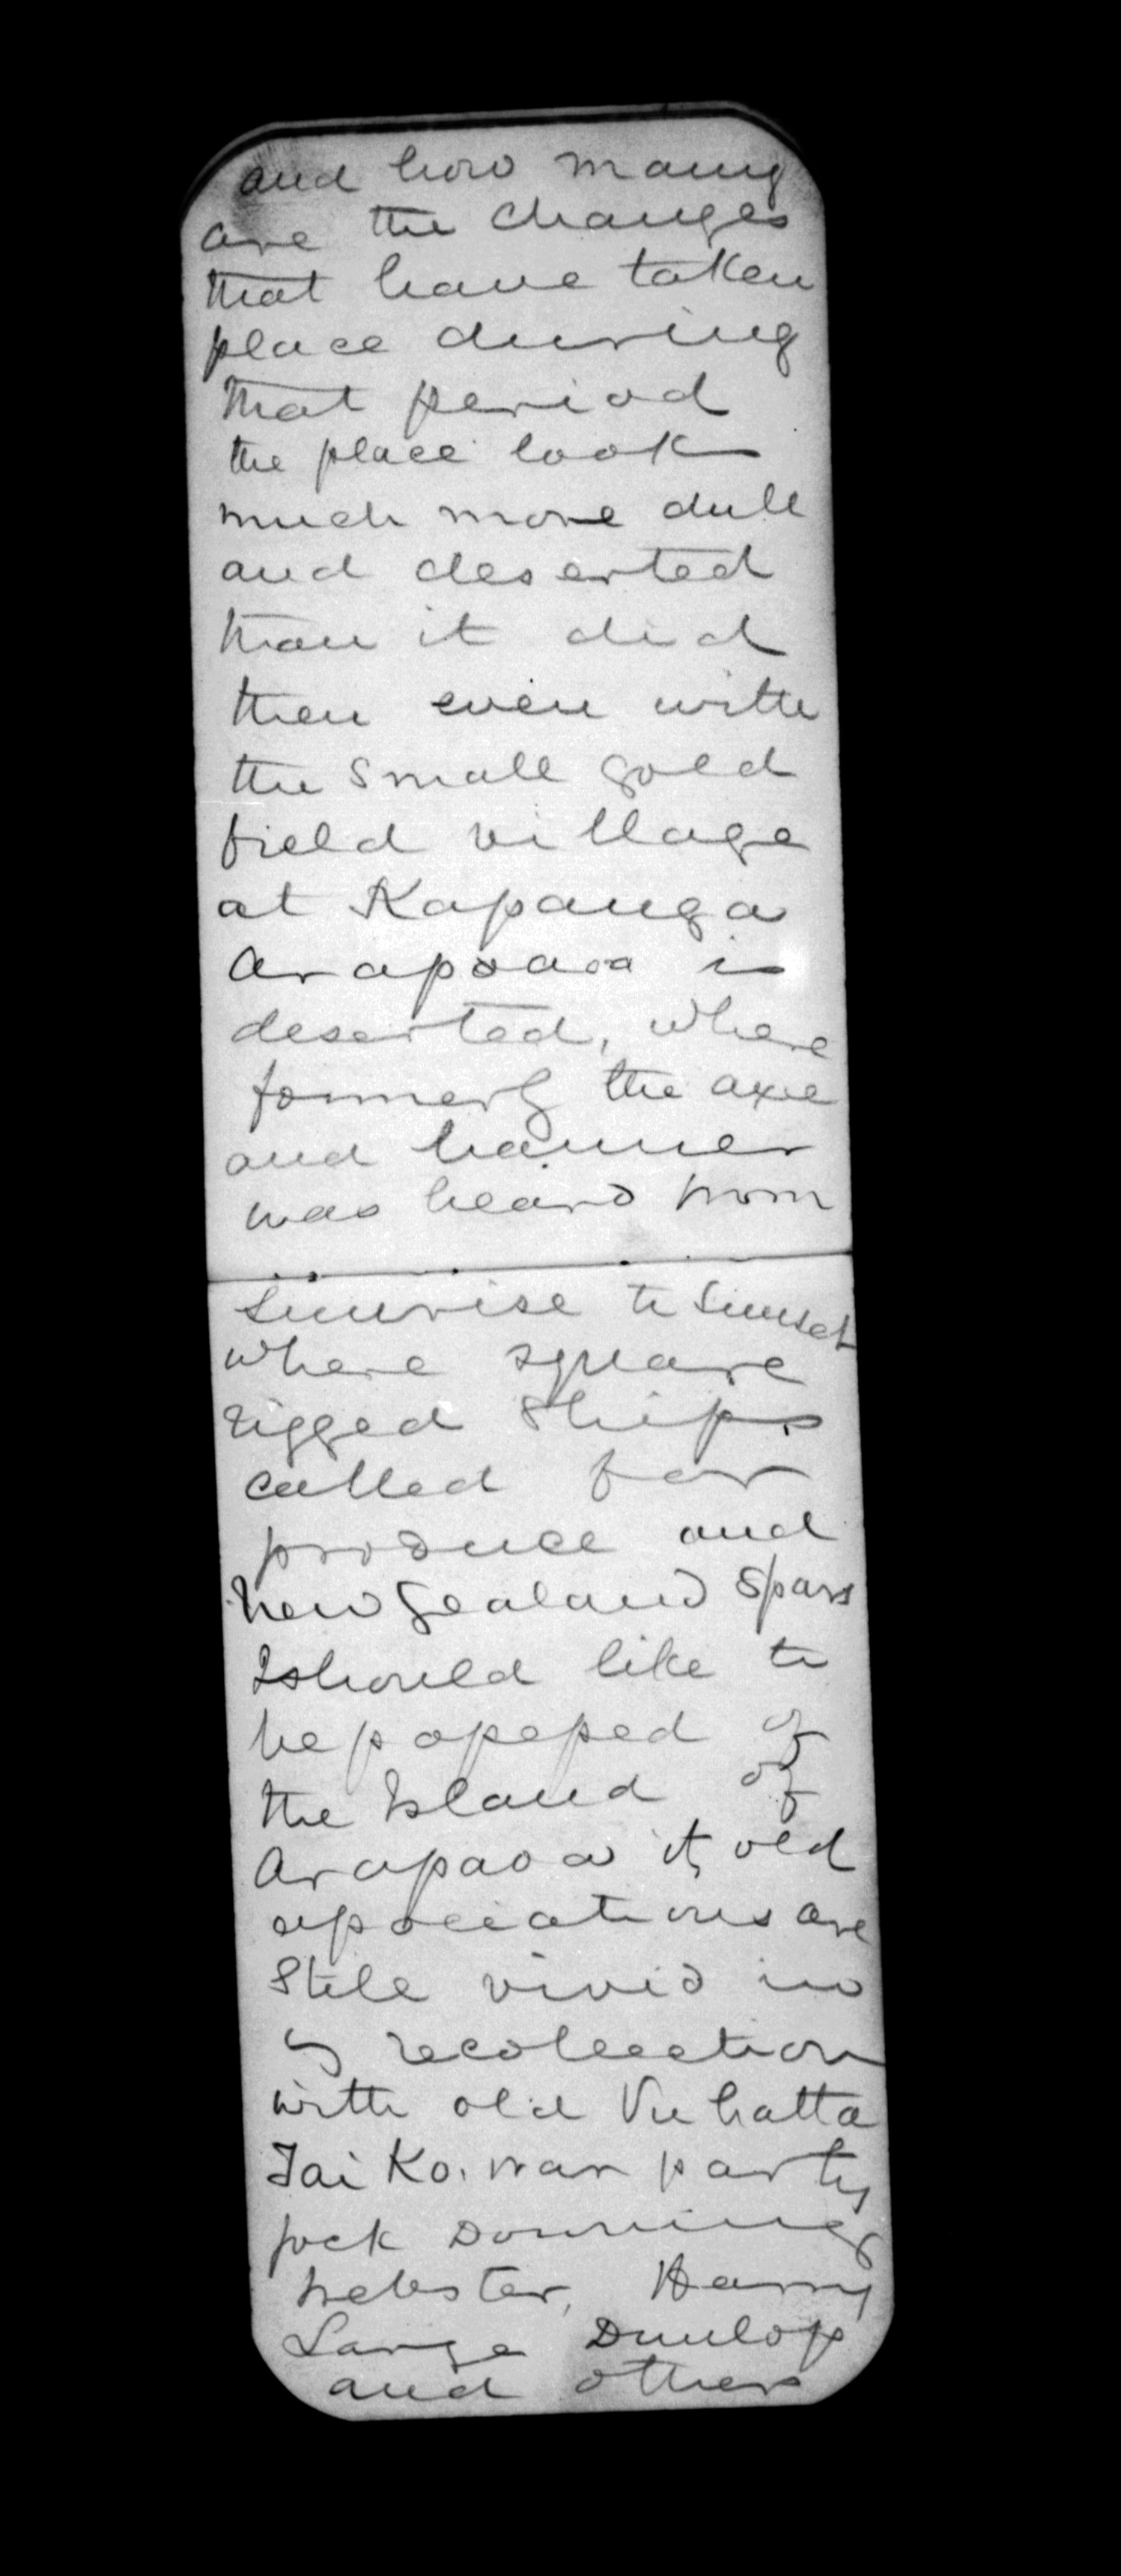 and how many
are the changes
that have taken
place during
that period
the place look
much more dull
and deserted
than it did
then even with
the small gold
field village
at Kapanga
Arapaoa is
deserted, where
formerly the axe
and hammer
was heard from
sunrise to sunset
where square
rigged ships
called for
produce and
New Zealand spars
I should like to
be possessed of
the Island of
Arapaoa its old
associations are
still vivid in
recollection
with old
Tai Ko. war party
Jock Downing
Webster, Harry
Large Dunlop
and others